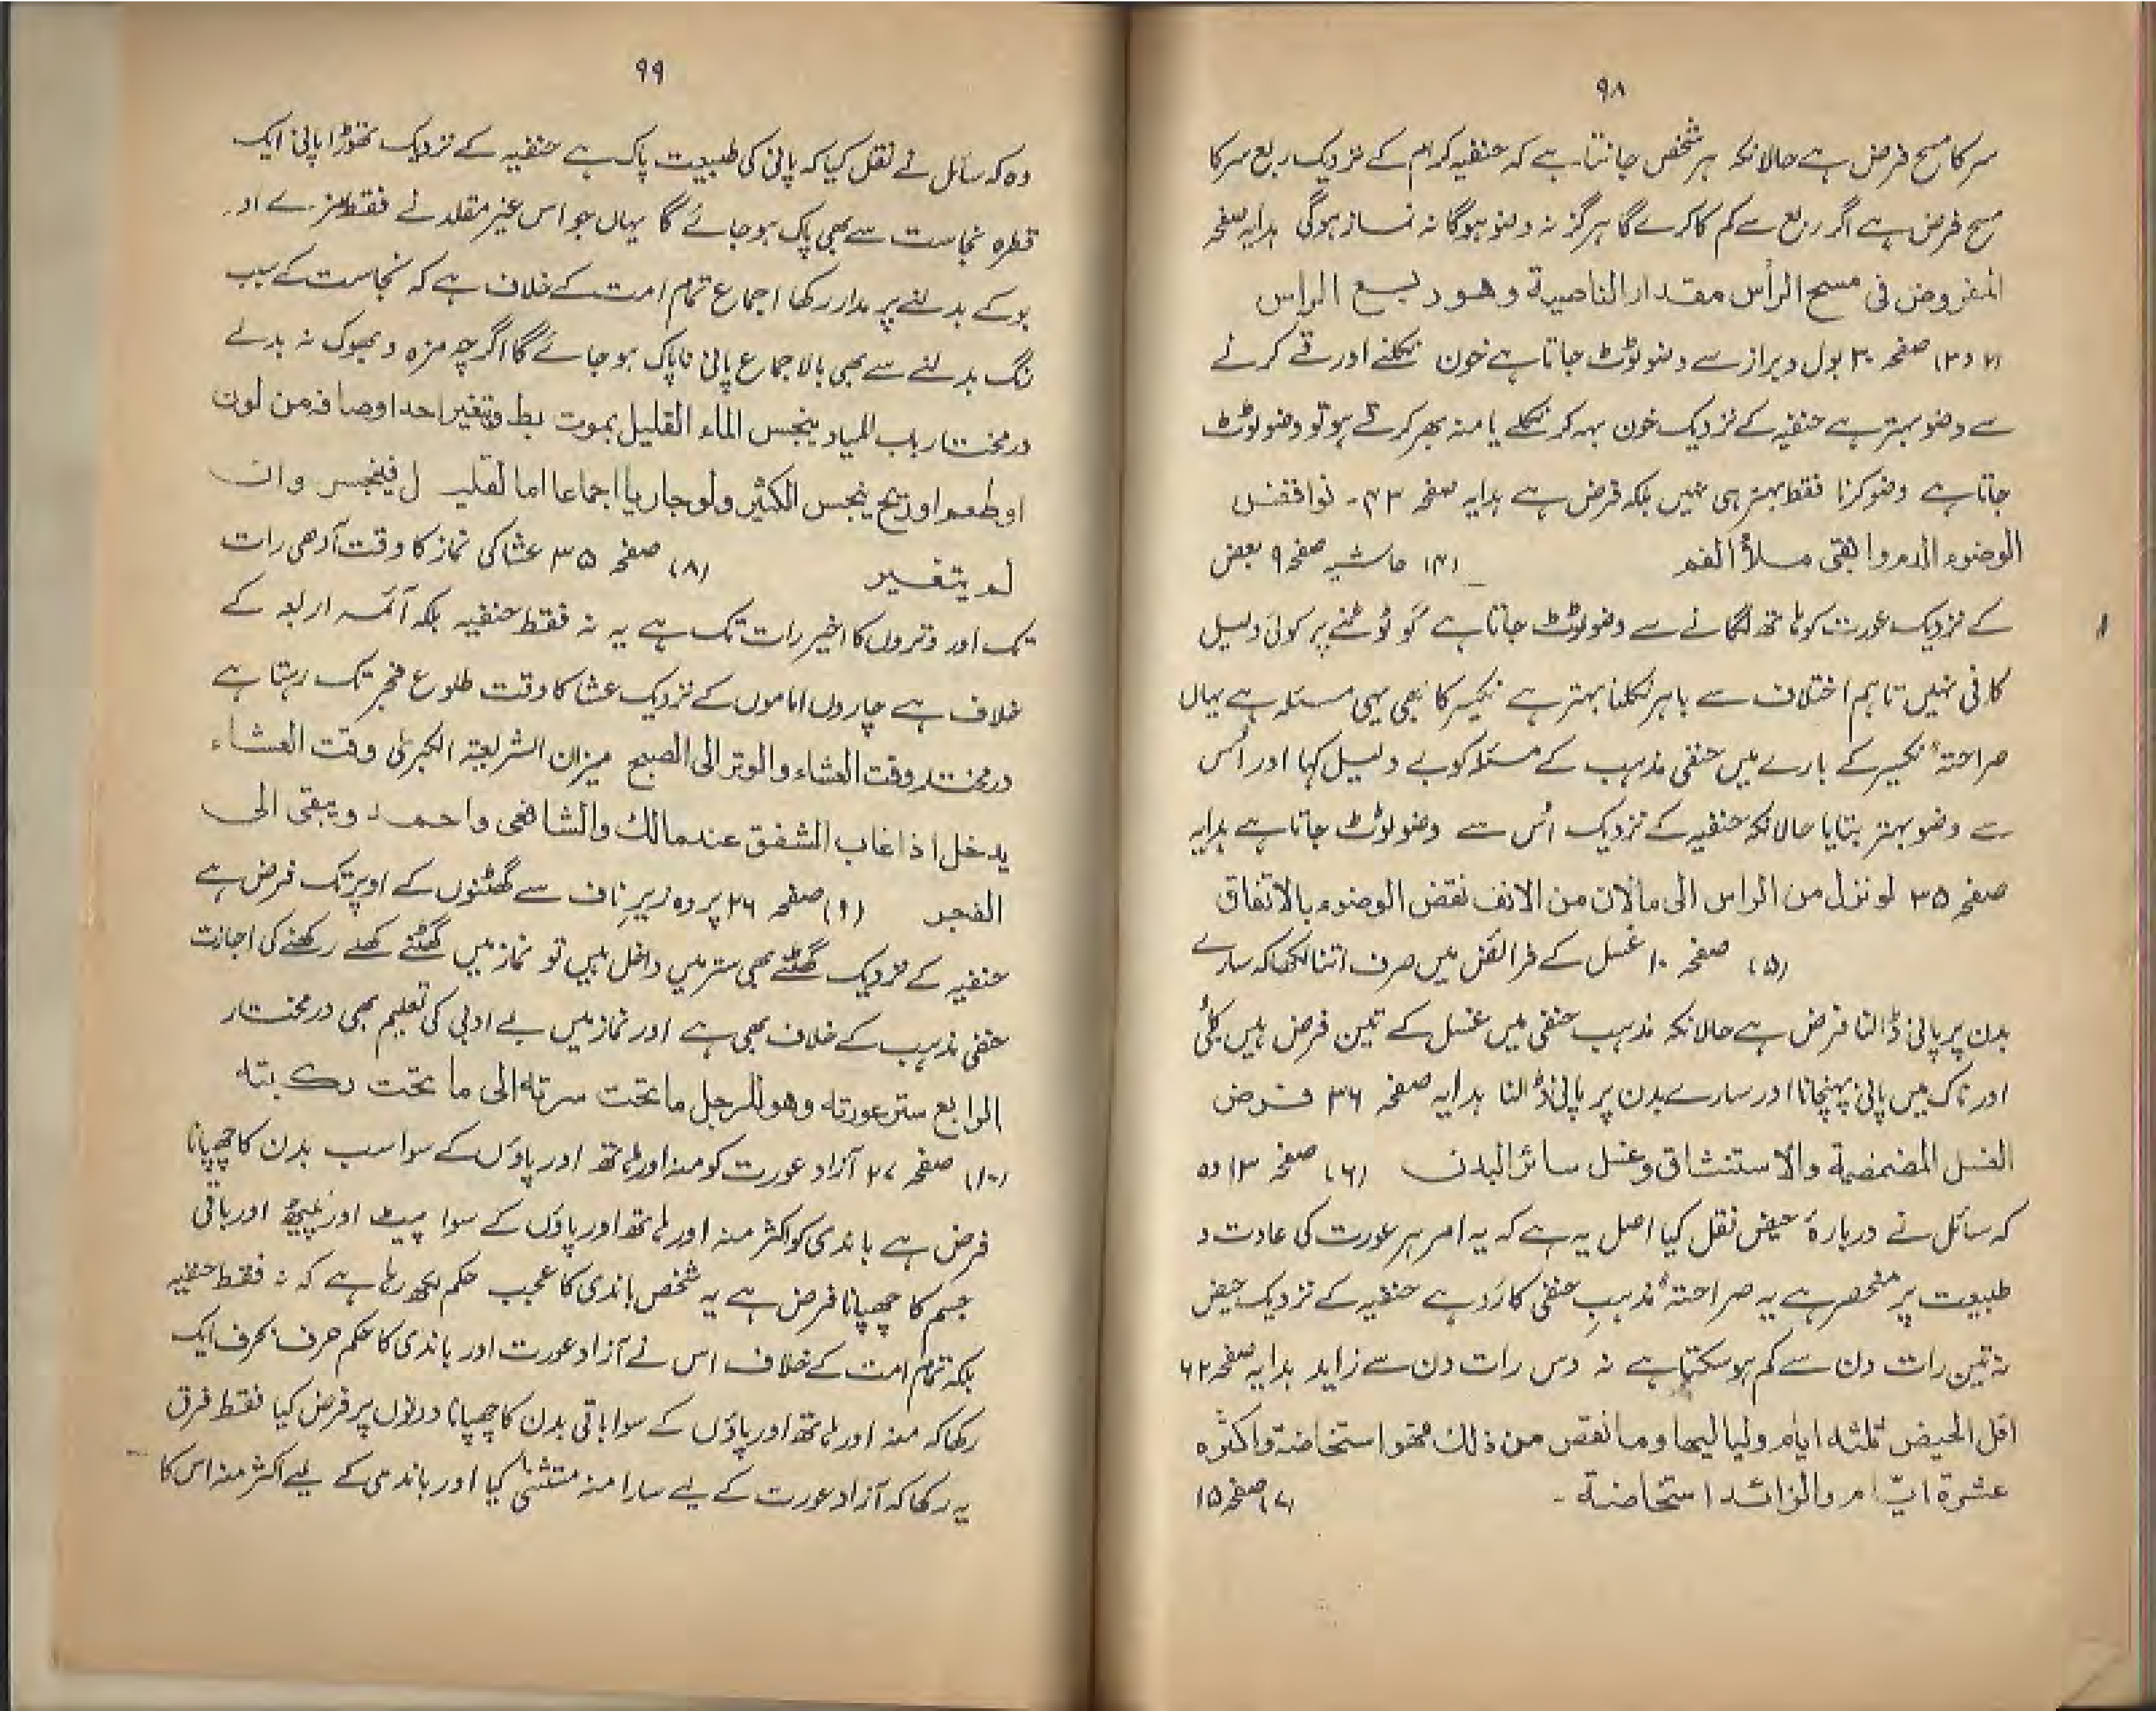 ۹۸
سر کا مسح فرض ہے حالانکہ ہر شخص جانتا ہے کہ حنفیہ کرام کے نزدیک ربع سر کا
مسح فرض ہے اگر ربع سے کم کا کرے گا ہرگز نہ وضو ہوگا نہ نماز ہوگی ہدایہ صفحہ
المفروض فی مسح الرأس مقدار الناصیة وهو ربع الراس
(۲ و ۳) صفحہ ۳۰ بول و براز سے وضو ٹوٹ جاتا ہے خون نکلنے اور قے کرنے
سے وضو بہتر ہے حنفیہ کے نزدیک خون بہہ کر نکلے یا منہ بھر کر قے ہو تو وضو ٹوٹ
جاتا ہے وضو کرنا فقط بہتر ہی نہیں بلکہ فرض ہے ہدایہ صفحہ ۲۳۔ نواقض
الوضوء الدم والقئ ملأ الفم (۴) حاشیہ صفحہ ۹ بعض
کے نزدیک عورت کو ہاتھ لگانے سے وضو ٹوٹ جاتا ہے گو ٹوٹنے پر کوئی دلیل
کافی نہیں تاہم اختلاف سے باہر نکلنا بہتر ہے نکسیر کا بھی یہی مسئلہ ہے یہاں
صراحتہً نکسیر کے بارے میں حنفی مذہب کے مسئلہ کو بے دلیل کہا اور اُس
سے وضو بہتر بتایا حالانکہ حنفیہ کے نزدیک اُس سے وضو ٹوٹ جاتا ہے ہدایہ
صفحہ ۳۵ لو نزل من الراس الی مالان من الانف نقض الوضوء بالاتفاق
(۵) صفحہ ۱۰ غسل کے فرائض میں صرف اتنا لکھا کہ سارے
بدن پر پانی ڈالنا فرض ہے حالانکہ مذہب حنفی میں غسل کے تین فرض ہیں کلّی
اور ناک میں پانی پہنچانا اور سارے بدن پر پانی ڈالنا ہدایہ صفحہ ۳۶ فرض
الغسل المضمضة والاستنشاق وغسل سائر البدن (۶) صفحہ ۱۳ وہ
کہ سائل نے دربارۂ حیض نقل کیا اصل یہ ہے کہ یہ امر ہر عورت کی عادت و
طبیعت پر منحصر ہے یہ صراحتہً مذہبِ حنفی کا رَد ہے حنفیہ کے نزدیک حیض
نہ تین رات دن سے کم ہو سکتا ہے نہ دس رات دن سے زاید ہدایہ صفحہ ۶۲
اقل الحیض ثلثه ایام ولیالیها وما نقص من ذلك فهو استحاضة واکثره
عشرة ایّام والزائد استحاضة۔ (۷) صفحہ ۱۵
۹۹
وہ کہ سائل نے نقل کیا کہ پانی کی طبیعت پاک ہے حنفیہ کے نزدیک تھوڑا پانی ایک
قطرہ نجاست سے بھی پاک ہو جائے گا یہاں جو اس غیر مقلد نے فقط مزے اور
بو کے بدلنے پر مدار رکھا اجماع تمام امت کے خلاف ہے کہ نجاست کے سبب
رنگ بدلنے سے بھی بالاجماع پانی ناپاک ہو جائے گا اگرچہ مزہ و بھوک نہ بدلے
درمختار باب المیاہ ینجس الماء القلیل بموت بط وبتغیر احد اوصافه من لون
او طعم او ریح ینجس الکثیر ولو جاریا اجماعا اما القلیل فینجس وان
لم یتغیر (۸) صفحہ ۳۵ عشا کی نماز کا وقت آدھی رات
تک اور وتروں کا اخیر رات تک ہے یہ نہ فقط حنفیہ بلکہ آئمہ اربعہ کے
خلاف ہے چاروں اماموں کے نزدیک عشا کا وقت طلوع فجر تک رہتا ہے
درمختار وقت العشاء والوتر الی الصبح میزان الشریعة الکبریٰ وقت العشاء
یدخل اذا غاب الشفق عند مالك والشافعی واحمد ویبقی الی
الفجر (۹) صفحہ ۲۶ پردہ زیرِ ناف سے گھٹنوں کے اوپر تک فرض ہے
حنفیہ کے نزدیک گھٹنے بھی ستر میں داخل ہیں تو نماز میں گھٹنے کھلے رکھنے کی اجازت
حنفی مذہب کے خلاف بھی ہے اور نماز میں بے ادبی کی تعلیم بھی درمختار
الرابع ستر عورته وهو للرجل ما تحت سرته الی ما تحت رکبته
(۱۰) صفحہ ۲۷ آزاد عورت کو منہ اور ہاتھ اور پاؤں کے سوا سب بدن کا چھپانا
فرض ہے باندی کو اکثر منہ اور ہاتھ اور پاؤں کے سوا پیٹ اور پیٹھ اور باقی
جسم کا چھپانا فرض ہے یہ شخص باندی کا عجب حکم لکھ رہا ہے کہ نہ فقط حنفیہ
بلکہ تمام امت کے خلاف اس نے آزاد عورت اور باندی کا حکم حرف بحرف ایک
رکھا کہ منہ اور ہاتھ اور پاؤں کے سوا باقی بدن کا چھپانا دونوں پر فرض کیا فقط فرق
یہ رکھا کہ آزاد عورت کے لیے سارا منہ مستثنیٰ کیا اور باندی کے لیے اکثر منہ اس کا